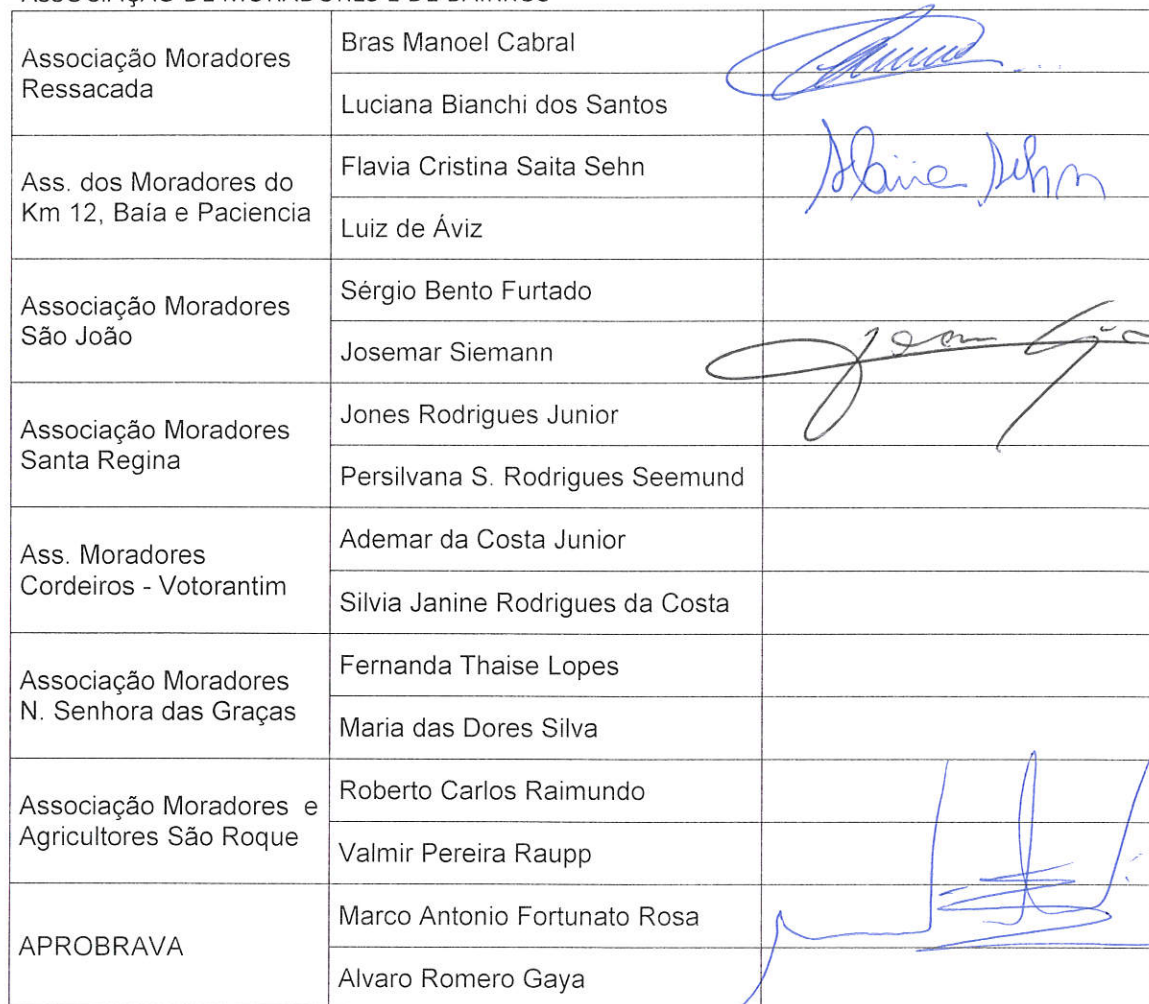 ASSOCIAÇÃO DE MORADORES E DE BAIRROS
Associação Moradores
Ressacada
Bras Manoel Cabral
Luciana Bianchi dos Santos
Ass. dos Moradores do
Km 12, Baía e Paciencia
Flavia Cristina Saita Sehn
Flavia Sehn
Luiz de Áviz
Associação Moradores
São João
Sérgio Bento Furtado
Josemar Siemann
Associação Moradores
Santa Regina
Jones Rodrigues Junior
Persilvana S. Rodrigues Seemund
Ass. Moradores
Cordeiros - Votorantim
Ademar da Costa Junior
Silvia Janine Rodrigues da Costa
Associação Moradores
N. Senhora das Graças
Fernanda Thaise Lopes
Maria das Dores Silva
Associação Moradores e
Agricultores São Roque
Roberto Carlos Raimundo
Valmir Pereira Raupp
APROBRAVA
Marco Antonio Fortunato Rosa
Alvaro Romero Gaya